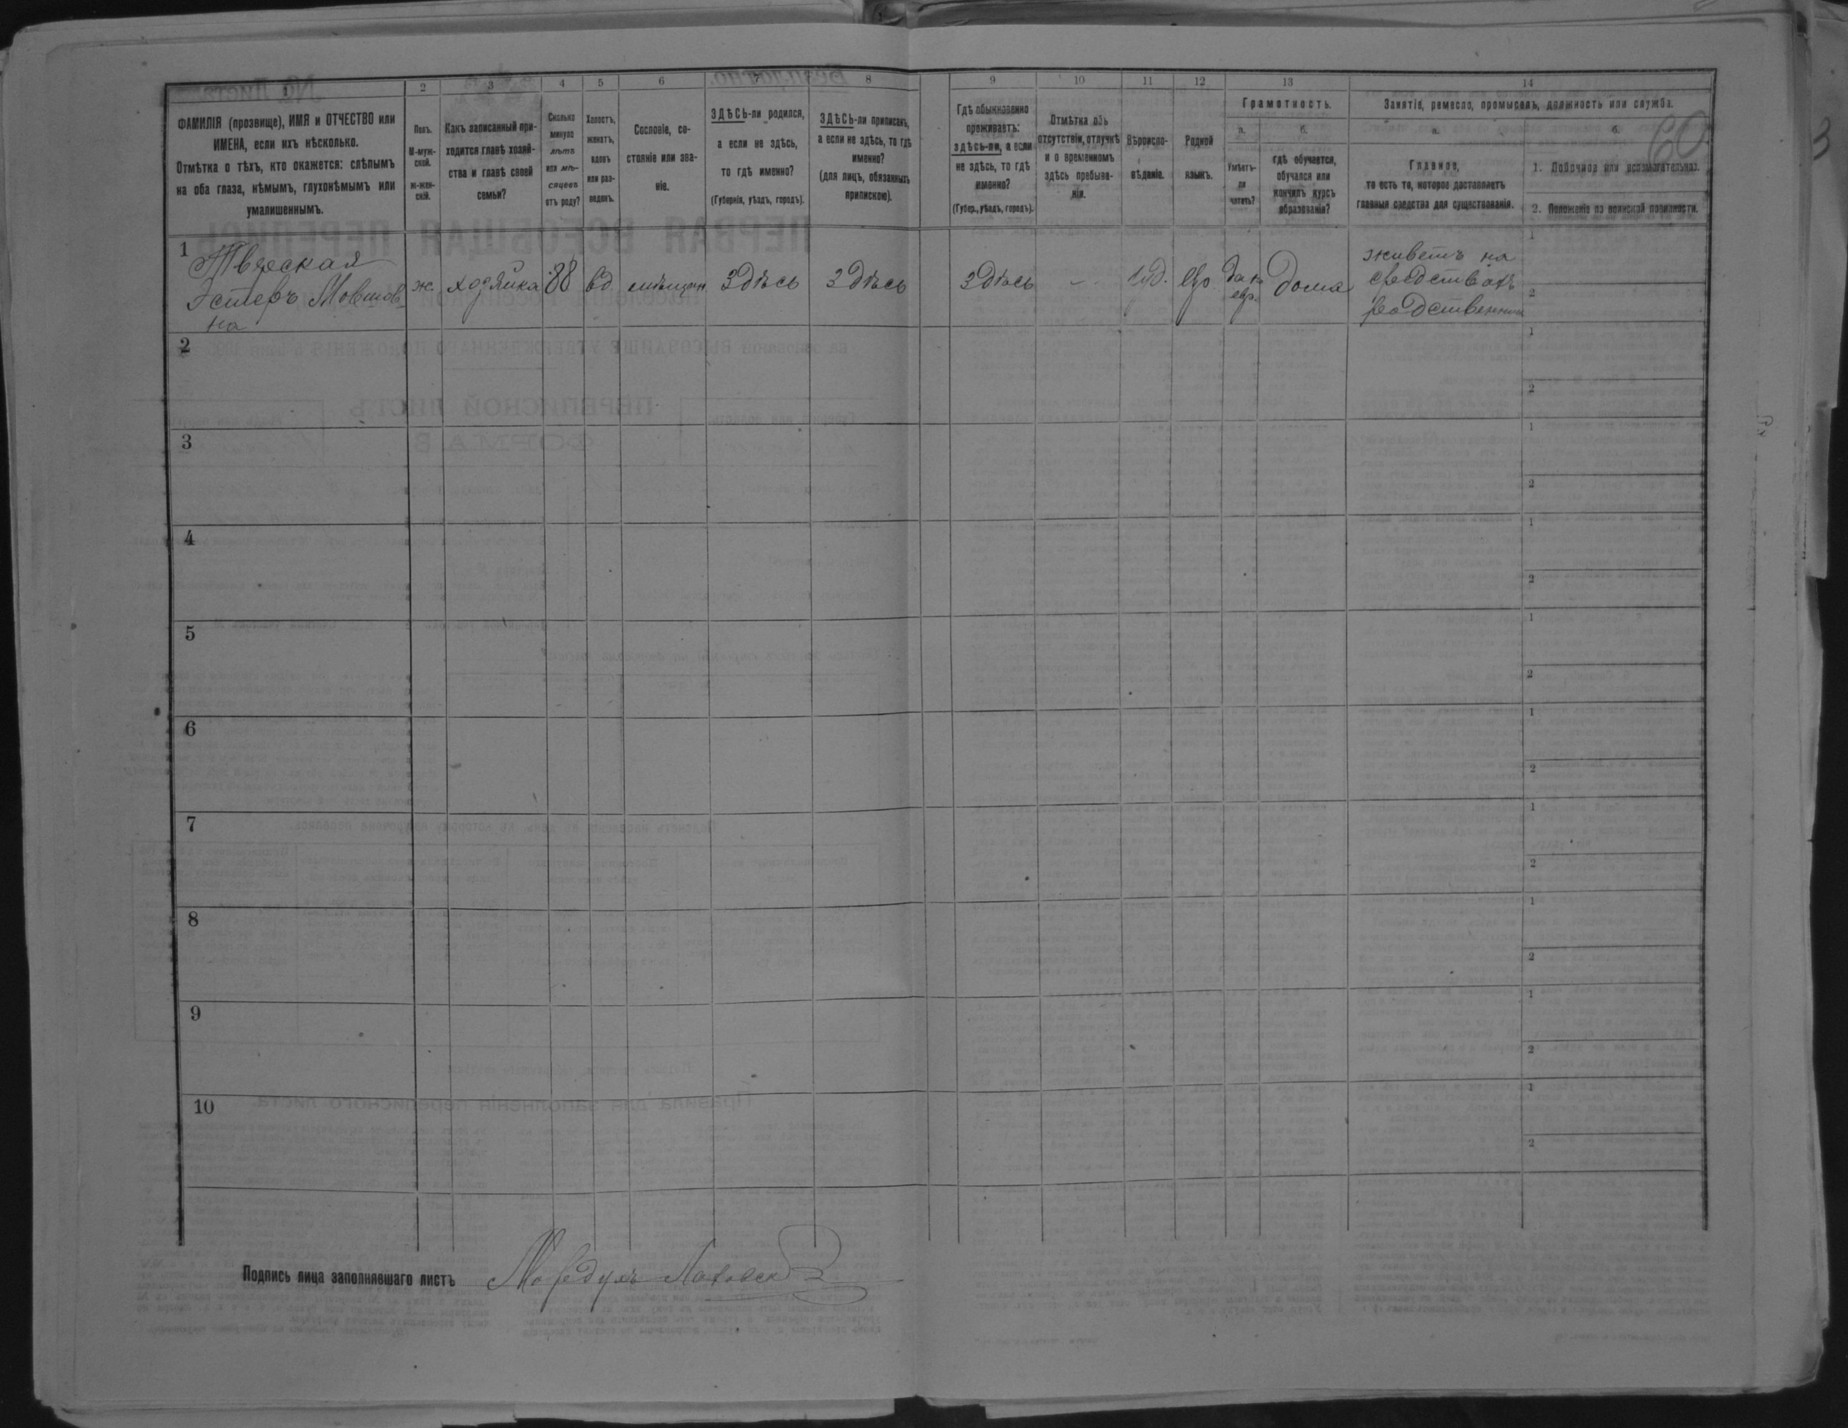 1 2 3 4 5 6 7 8 9 10 11 12 13 14
ФАМИЛІЯ (прозвище), ИМЯ и ОТЧЕСТВО или
ИМЕНА, если ихъ нѣсколько.
Отмѣтка о тѣхъ, кто окажется: слѣпымъ
на оба глаза, нѣмымъ, глухонѣмымъ или
умалишеннымъ.
Полъ.
М-муж-
ской.
ж-жен-
скій.
Какъ записанный при-
ходится главѣ хозяй-
ства и главѣ своей
семьи?
Сколько
минуло
лѣтъ
или мѣ-
сяцевъ
отъ роду?
Холостъ,
женатъ,
вдовъ
или раз-
веденъ.
Сословіе, со-
стояніе или зва-
ніе.
ЗДѢСЬ-ли родился,
а если не здѣсь,
то гдѣ именно?
(Губернія, уѣздъ, городъ).
ЗДѢСЬ-ли приписанъ,
а если не здѣсь, то гдѣ
именно?
(для лицъ, обязанныхъ
припискою).
Гдѣ обыкновенно
проживаетъ:
здѣсь-ли, а если
не здѣсь, то гдѣ
именно?
(Губер., уѣздъ, городъ).
Отмѣтка объ
отсутствіи, отлучкѣ
и о временномъ
здѣсь пребыва-
ніи.
Вѣроиспо-
вѣданіе.
Родной
языкъ.
Грамотность.
а.
Умѣетъ-
ли
читать?
б.
гдѣ обучается,
обучался или
кончилъ курсъ
образованія?
Занятіе, ремесло, промыселъ, должность или служба.
а.
Главное,
то есть то, которое доставляетъ
главныя средства для существованія.
б.
1. Побочное или вспомогательное.
2. Положеніе по воинской повинности.
60
1
Эстеръ Мовшов
на
ж
хозяйка
88
вд
здѣсь
здѣсь
здѣсь
-
іуд.
евр
дома
живетъ на
средствахъ
1
2
2
1
2
3
1
2
4
1
2
5
1
2
6
1
2
7
1
2
8
1
2
9
1
2
10
1
2
Подпись лица заполнявшаго листъ
Мордухъ
3